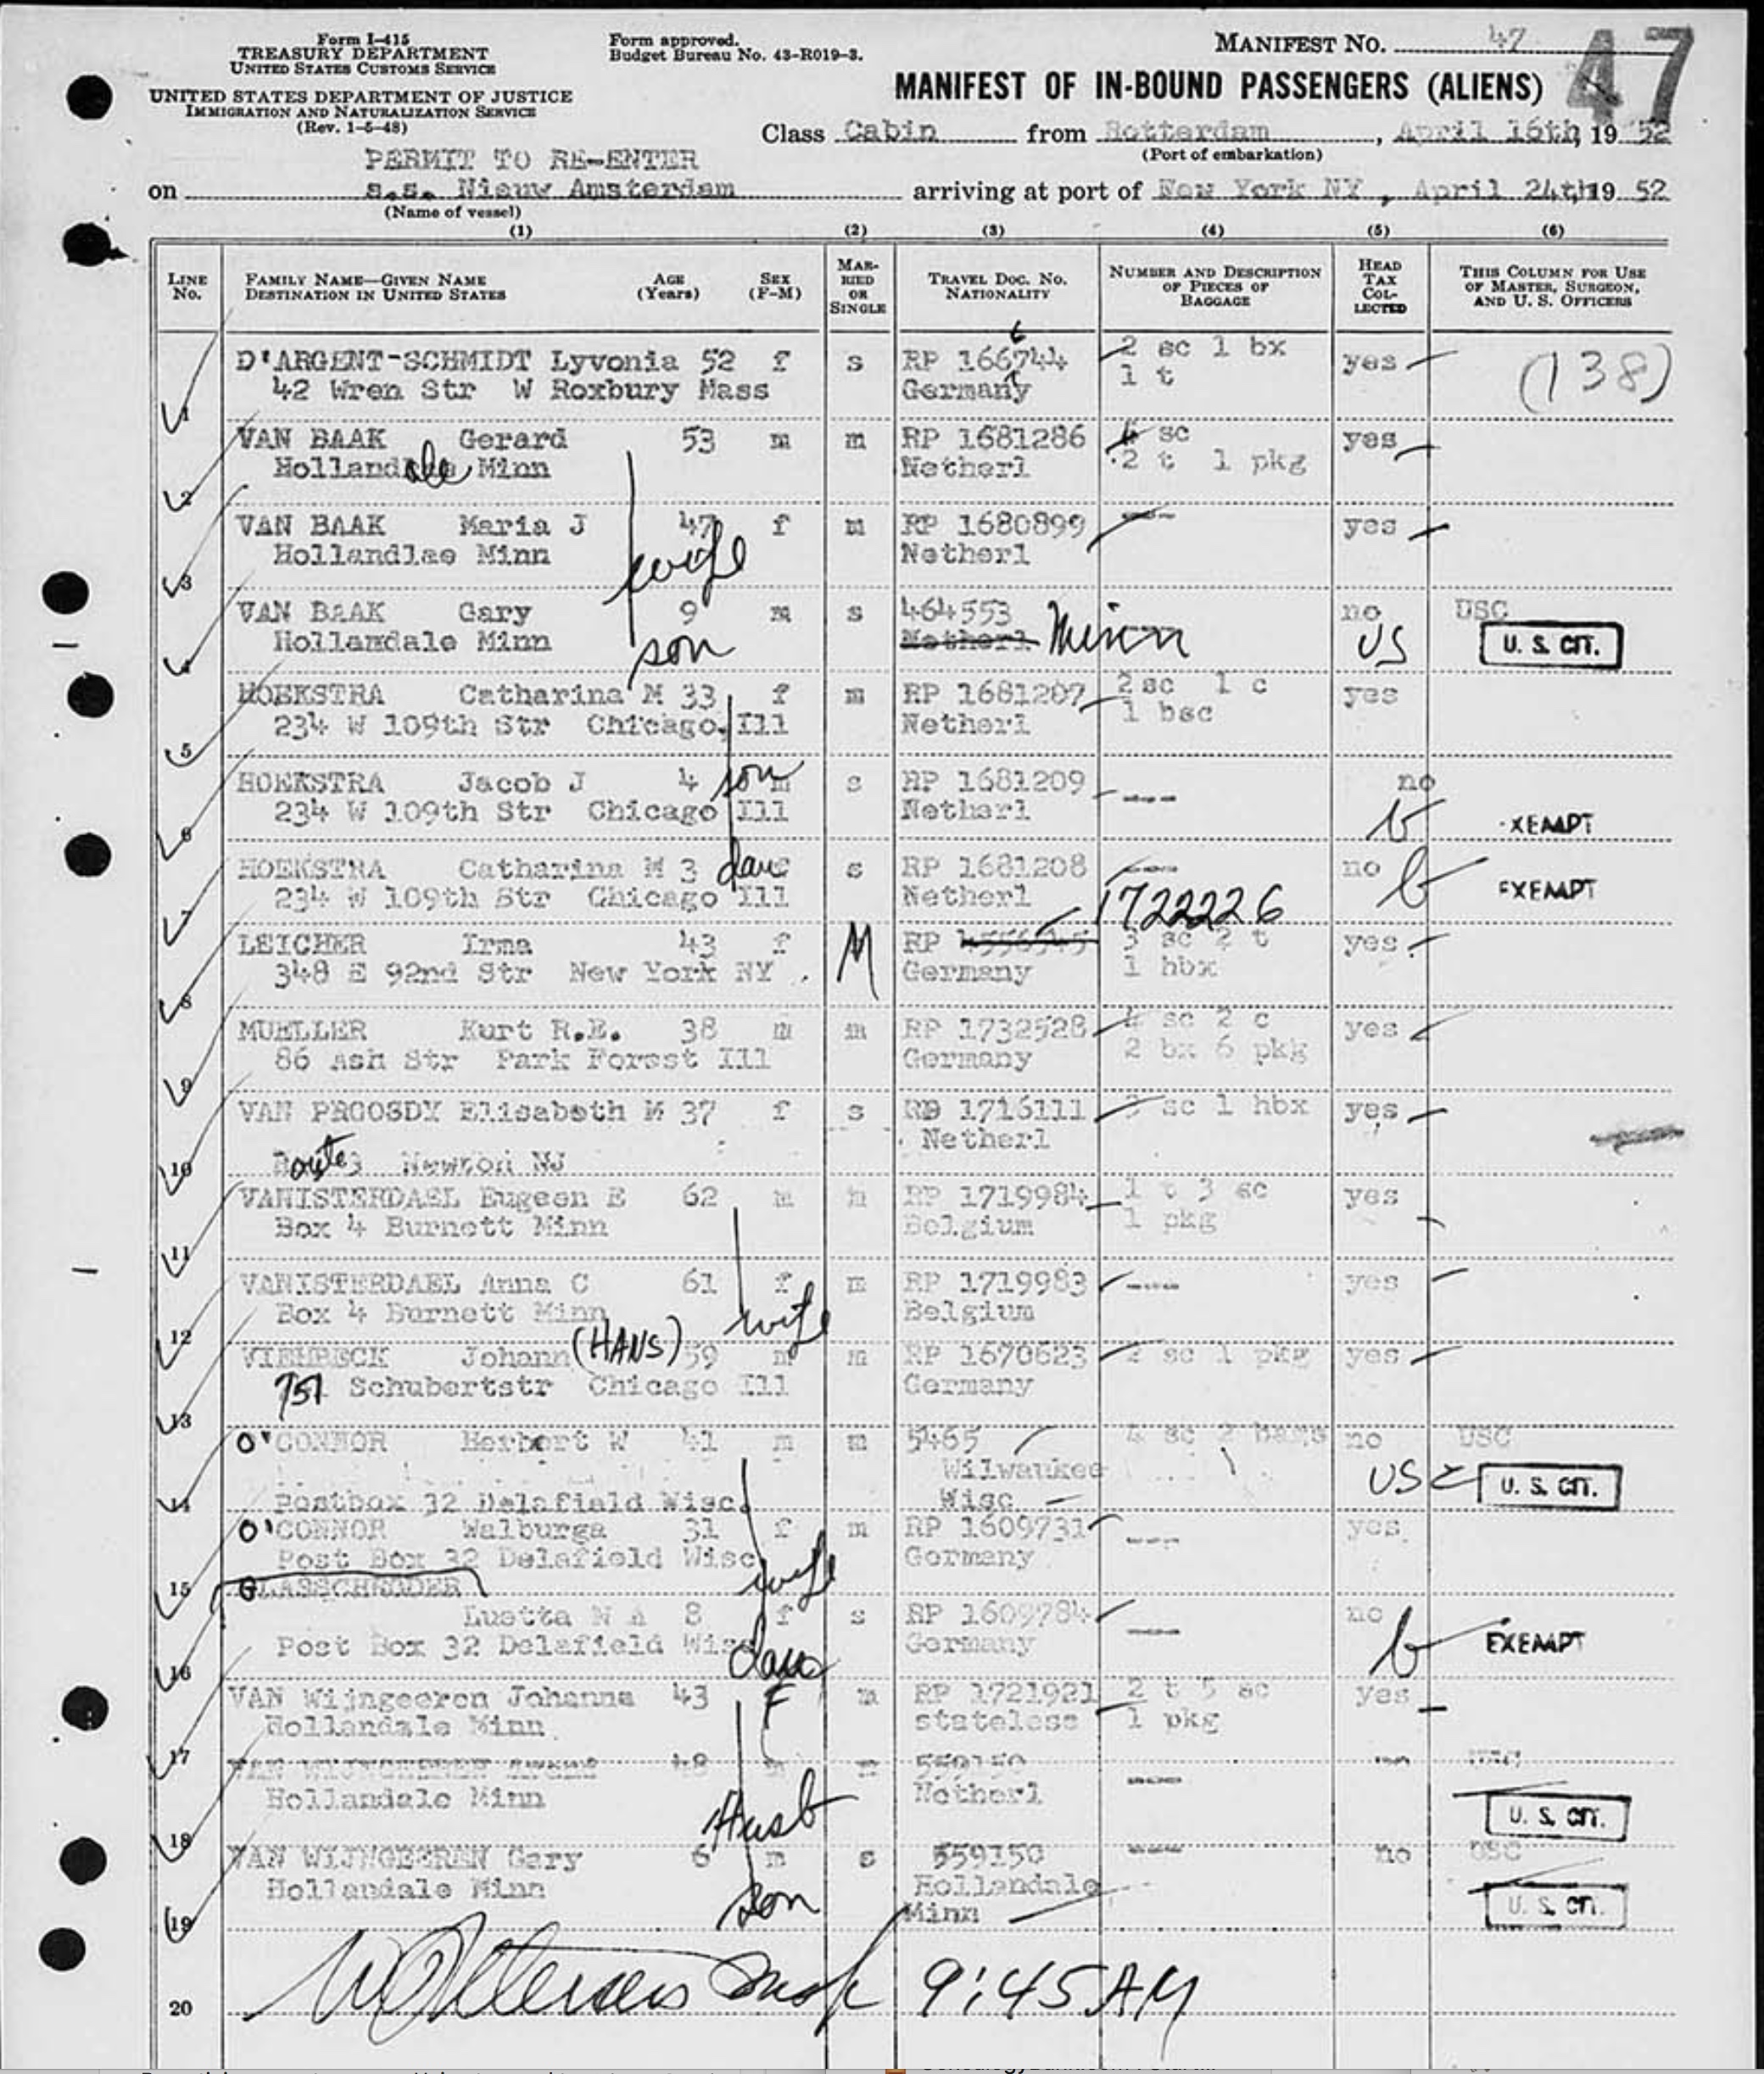 Form I-415
TREASURY DEPARTMENT
UNITED STATES CUSTOMS SERVICE
UNITED STATES DEPARTMENT OF JUSTICE
IMMIGRATION AND NATURALIZATION SERVICE
(Rev. 1-5-48)
Form approved.
Budget Bureau No. 43-R019-3.
MANIFEST NO. 47
47
MANIFEST OF IN-BOUND PASSENGERS (ALIENS)
Class Cabin from Rotterdam, April 16th, 19 52
(Port of embarkation)
PERMIT TO RE-ENTER
on s.s. Nieuw Amsterdam arriving at port of New York NY, April 24th 19 52
(Name of vessel)
(1) (2) (3) (4) (5) (6)
LINE No.
FAMILY NAME—GIVEN NAME
DESTINATION IN UNITED STATES
AGE (Years)
SEX (F-M)
MARRIED OR SINGLE
TRAVEL DOC. NO. NATIONALITY
NUMBER AND DESCRIPTION OF PIECES OF BAGGAGE
HEAD TAX COLLECTED
THIS COLUMN FOR USE OF MASTER, SURGEON, AND U. S. OFFICERS
D'ARGENT-SCHMIDT Lyvonia 52 f s RP 166744 2 sc 1 bx yes (138)
6
1 42 Wren Str W Roxbury Mass Germany 1 t
VAN BAAK Gerard 53 m m RP 1681286 sc yes
2 Hollandale Minn Netherl 2 t 1 pkg
VAN BAAK Maria J 47 f m RP 1680899 --- yes
3 Hollandlae Minn wife Netherl
VAN BAAK Gary 9 m s 464553 no USC
4 Hollandale Minn son Netherl Minn US U. S. CIT.
HOEKSTRA Catharina M 33 f m RP 1681207 2 sc 1 c yes
5 234 W 109th Str Chicago, Ill Netherl 1 bsc
HOEKSTRA Jacob J 4 son m s RP 1681209 --- no
6 234 W 109th Str Chicago Ill Netherl XEMPT
HOEKSTRA Catharina M 3 dau f s RP 1681208 --- no
7 234 W 109th Str Chicago Ill Netherl 1722226 EXEMPT
LEICHER Irma 43 f M RP 3 sc 2 t yes
8 348 E 92nd Str New York NY. Germany 1 hbx
MUELLER Kurt R.E. 38 m m RP 1732528 4 sc 2 c yes
9 86 Ash Str Park Forsst Ill Germany 2 bx 6 pkg
VAN PROOSDY Elisabeth M 37 f s RP 1716111 3 sc 1 hbx yes
Netherl
10 Route 3 Newton NJ
VANISTERDAEL Eugeen E 62 m m RP 1719984 1 t 3 sc yes
11 Box 4 Burnett Minn Belgium 1 pkg
VANISTERDAEL Anna C 61 f m RP 1719983 --- yes
12 Box 4 Burnett Minn wife Belgium
VIEHBECK Johann (HANS) 59 m m RP 1670623 2 sc 1 pkg yes
13 751 Schubertstr Chicago Ill Germany
O'CONNOR Herbert W 41 m m 5465 4 sc 2 no USC
Wilwaukee US U. S. CIT.
14 Postbox 32 Delafield Wisc. Wisc
O'CONNOR Walburga 31 f m RP 1609731 --- yes
Post Box 32 Delafield Wisc wife Germany
15 GLASSCHRODER
Luetta N A 8 f s RP 1609784 --- no
16 Post Box 32 Delafield Wisc dau Germany EXEMPT
VAN Wijngeeren Johanna 43 F m RP 1721921 2 t 5 sc yes
17 Hollandale Minn stateless 1 pkg
VAN WIJNGEEREN 48 m m 559150
18 Hollandale Minn Husb Netherl --- U. S. CIT.
VAN WIJNGEEREN Gary 6 m s 559150 --- no USC
19 Hollandale Minn son Hollandale Minn U. S. CIT.
20 9:45 AM